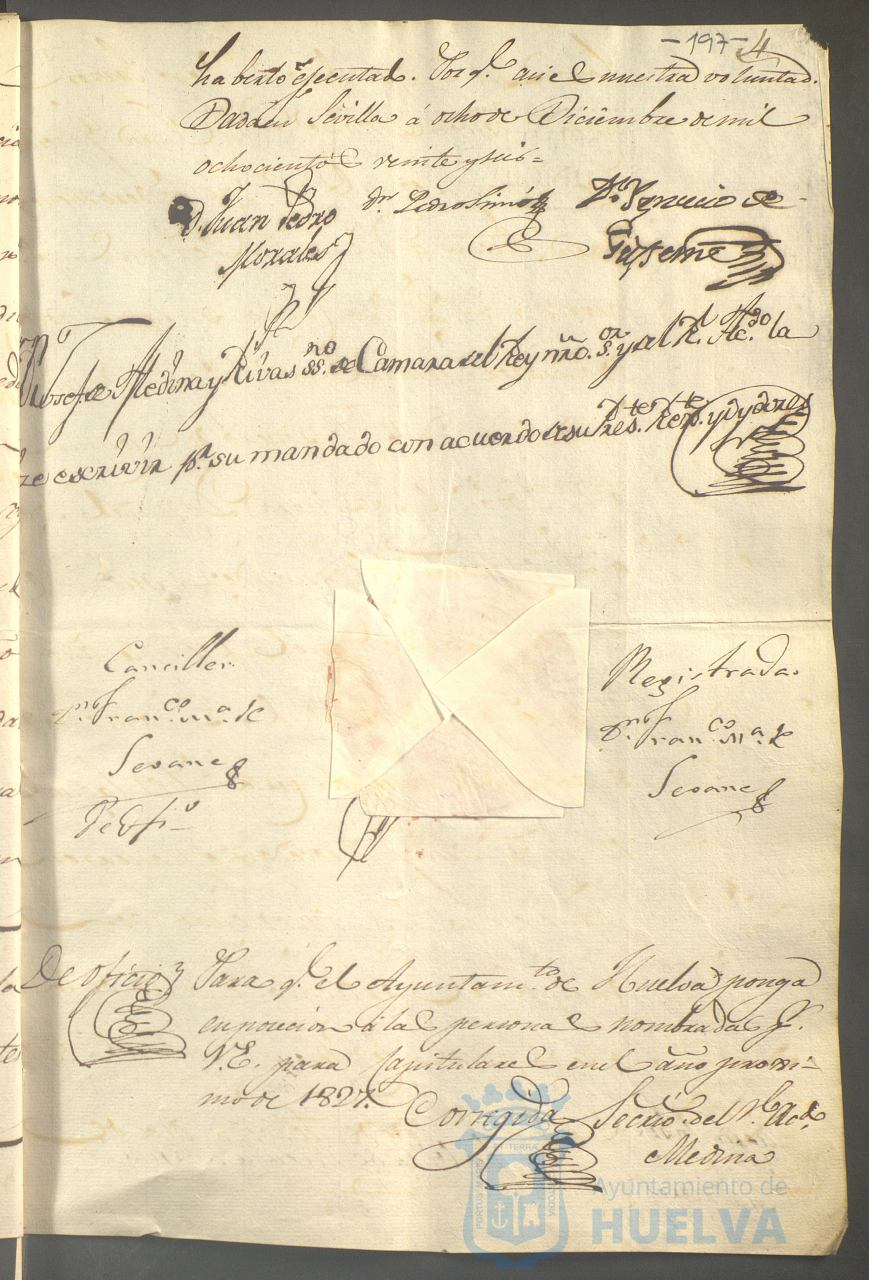 -197- 4
haberlo ejecutado. Porq.e asi es nuestra voluntad.
Dada en Sevilla á ocho de Diciembre de mil
ochocientos veinte y seis=
D. Juan Pedro
Morales
Dn. Pedro Simó
Dn. Ygnacio de
Yo Josef de Medina y Rivas SS.no de Camara del Rey nro. S.or y del R.l Ac.do la
ze escrivir p.r su mandado con acuerdo de su Pres.te Rex.te y oydores
Canciller
Dn. Fran.co M.a de
Seoane
Registrada
Dn. Fran.co M.a de
Seoane
De oficio
Para q.e el Ayuntam.to de Huelva ponga
en posesion á las personas nombradas p.r
V.E. para Capitulares en el año procsi-
mo de 1827.
Corregida
Secrio. del R.l Acdo.
Medina
Ayuntamiento de
HUELVA